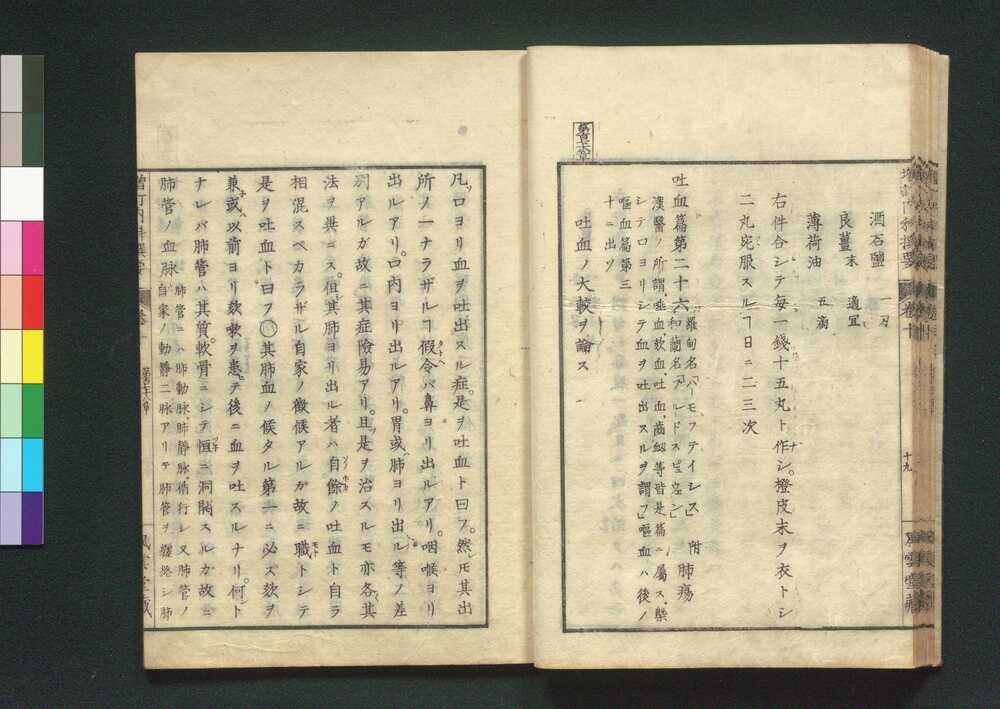 酒石鹽 一刃
良薑末 適宜
薄荷油 五滴
右件合シテ毎一錢十五丸ト作シ。橙皮末ヲ衣トシ
二丸宛服スルヿ日ニ二三次
第百二十六章
吐血篇第二十六 羅甸名「ハーモフテイシス」 和蘭名「ブルードスピュウウィング」 附 肺瘍
漢醫ノ所謂唾血、欬血、吐血、衄等皆是篇ニ屬ス。槩
シテ口ヨリシテ血ヲ吐出スルヲ謂フ」嘔血ハ後ノ
嘔血篇第三
十ニ出ツ
吐血ノ大較ヲ論ス
增訂内科撰要 卷十 十九 風雲堂藏
凡ソ口ヨリ血ヲ吐出スル症。是ヲ吐血ト曰フ。然レモ其出
所ノ一ナラザルヿ假令バ鼻ヨリ出ルアリ。咽喉ヨリ
出ルアリ。口内ヨリ出ルアリ。胃或ハ肺ヨリ出ル等ノ差
別アルガ故ニ其症險易アリ。且是ヲ治スルモ亦各其
法ヲ異ニス。但其肺ヨリ出ル者ハ自餘ノ吐血ト自ラ
相混スベカラザル自家ノ徴候アルガ故ニ職トシテ
是ヲ吐血ト曰フ○其肺血ノ候タル第一ニ必ズ欬ヲ
兼或ハ以前ヨリ欬嗽ヲ患テ後ニ血ヲ吐スルナリ。何ト
ナレバ肺管ハ其質軟骨ニシテ恒ニ洞開スルガ故ニ
肺管ノ血脉 肺管ニハ肺動脉、肺静脉循行シ又肺管ノ
自家ノ動靜二脉アリテ肺管ヲ纒絡シ肺
增訂内科撰要 卷十 第百二十六章 風雲堂藏